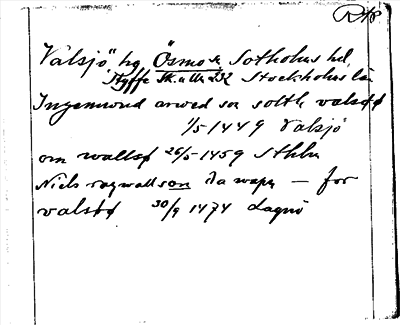 RAp
Valsjö" hg Ösmo sn Sotholms hd,
Styffe Sk. u. U. s 232 Stockholms län
Ingemund arwed son solth valsøø
1/5 1449 Valsjö
om wallsø 26/5 1459 Sthlm
Niels ragwallson aa wapn — for
valsøø 30/9 1474 Lagnö